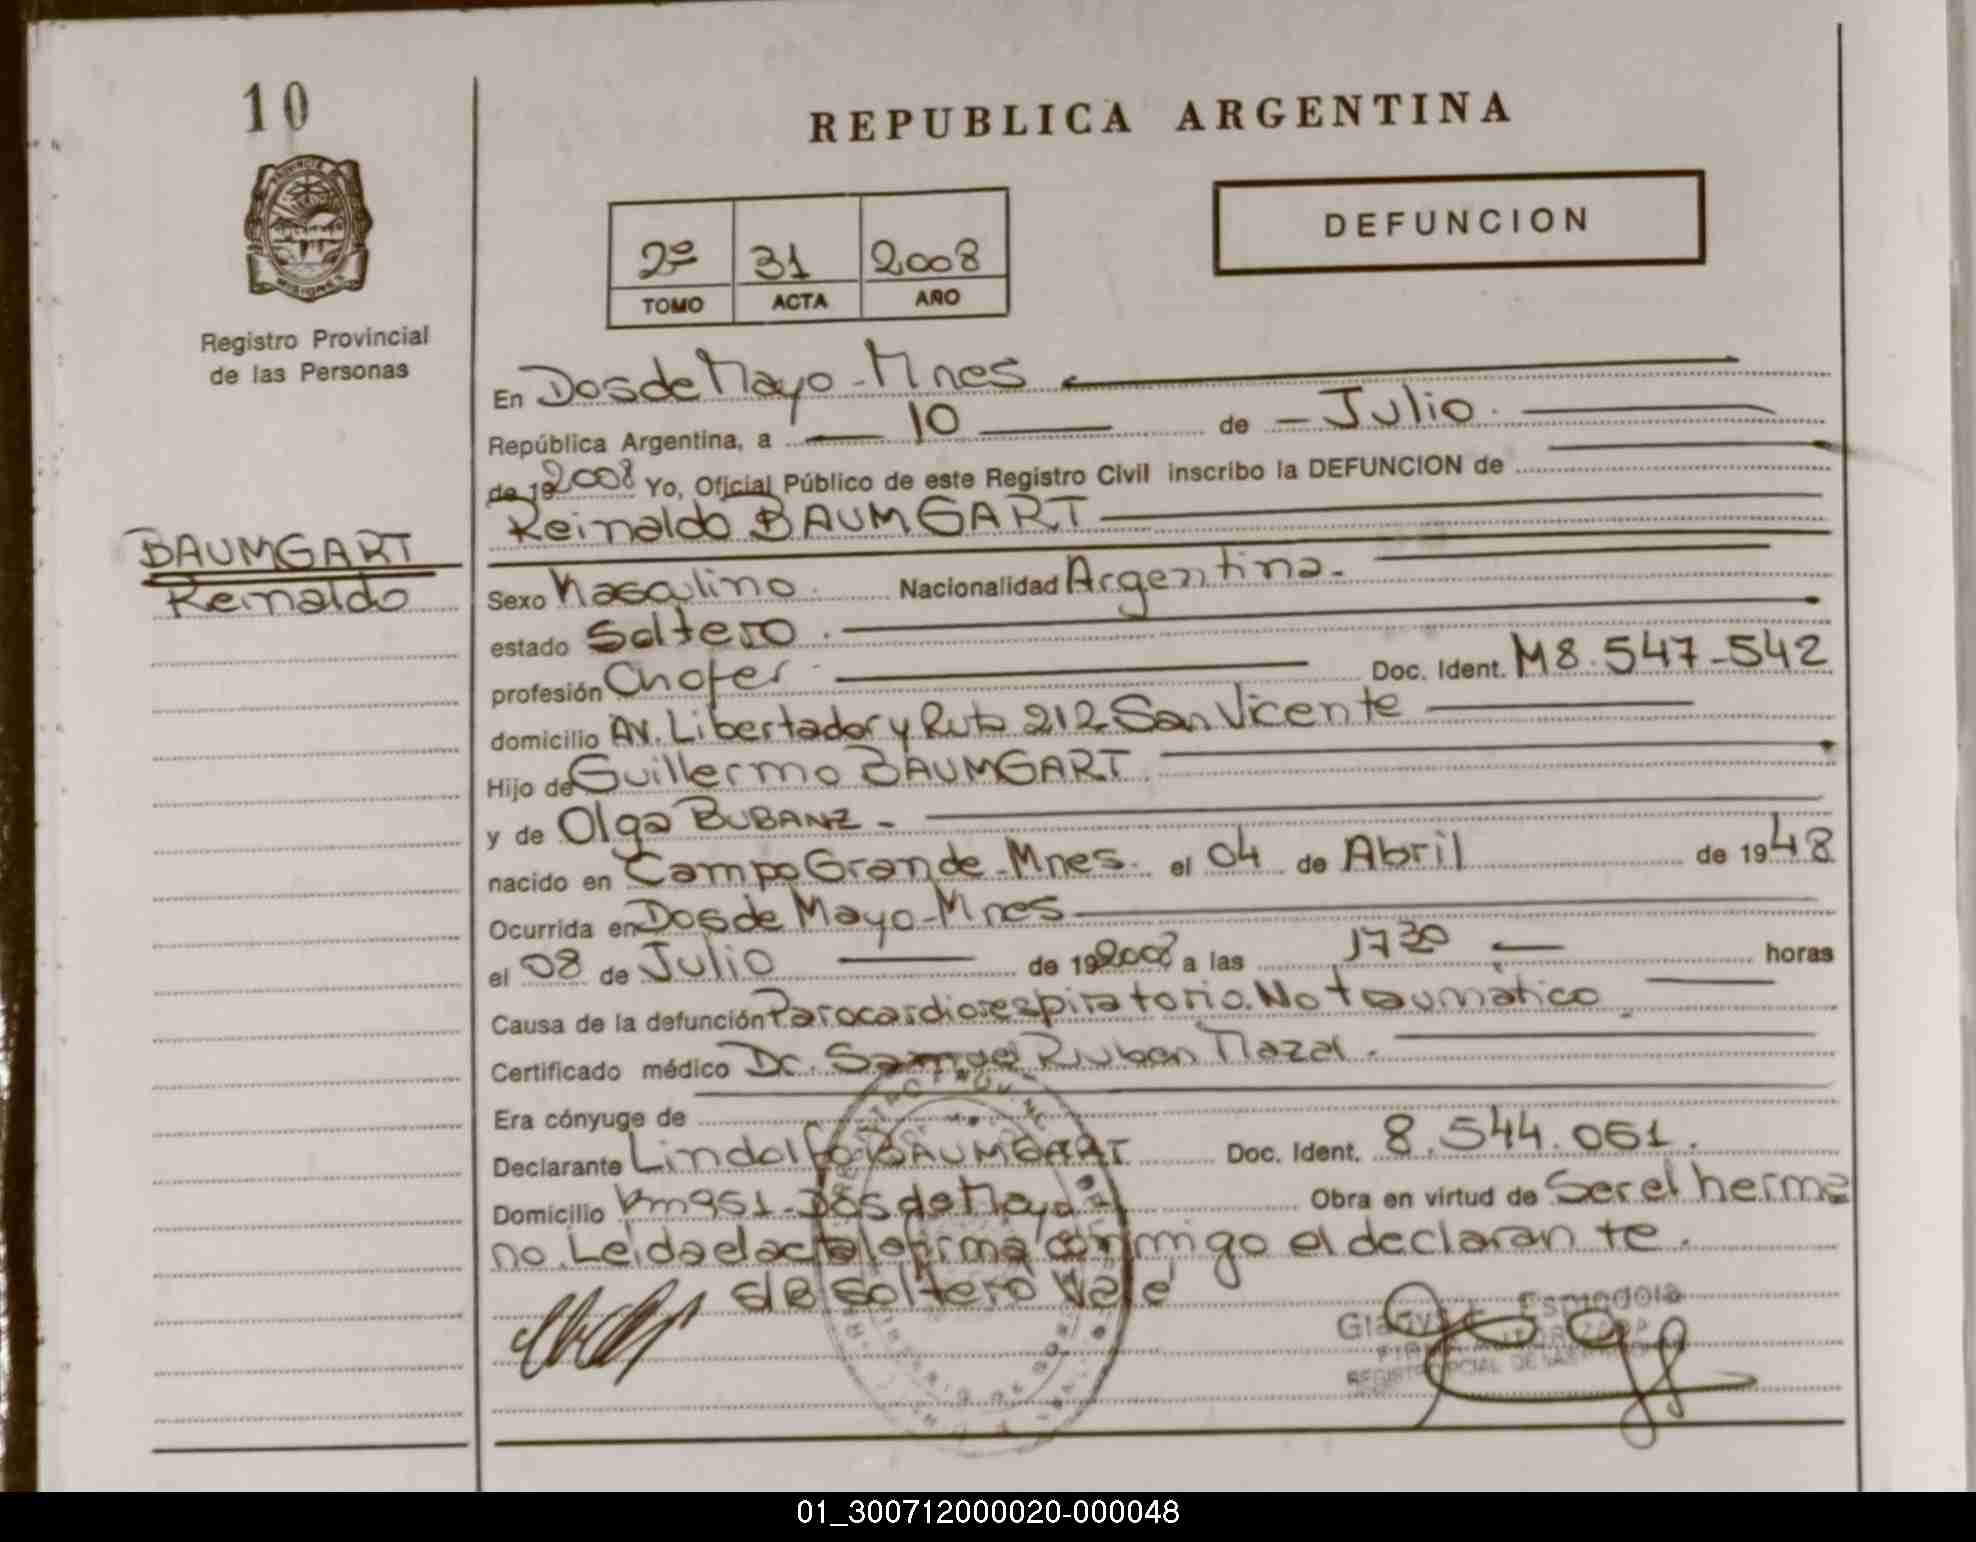 10
PROVINCIA
MISIONES
Registro Provincial
de las Personas
BAUMGART
Reinaldo
REPUBLICA ARGENTINA
2º 31 2008
TOMO ACTA AÑO
DEFUNCION
En Dos de Mayo - Mnes
República Argentina, a 10 de - Julio.
de 19 2008 Yo, Oficial Público de este Registro Civil inscribo la DEFUNCION de
Reinaldo BAUMGART
Sexo Masculino. Nacionalidad Argentina.
estado Soltero.
profesión Chofer Doc. Ident. M8.547-542
domicilio Av. Libertador y Ruta 212 San Vicente
Hijo de Guillermo BAUMGART
y de Olga BUBANZ -
nacido en Campo Grande - Mnes. el 04 de Abril de 1948
Ocurrida en Dos de Mayo - Mnes
el 08 de Julio de 19 2008 a las 17 30 horas
Causa de la defunción Parocardiorespiratorio. No traumático
Certificado médico Dr. Samuel Ruben
Era cónyuge de
Declarante Lindolfo BAUMGART Doc. Ident. 8.544.061.
Domicilio Km 951 - Dos de Mayo Obra en virtud de Ser el herma
no. Leida el acta la firma conmigo el declarante.
S/B Soltero Vale
Gladys Espindola
FIRMA AUTORIZADA
REGISTRO PCIAL DE LAS
01_300712000020-000048